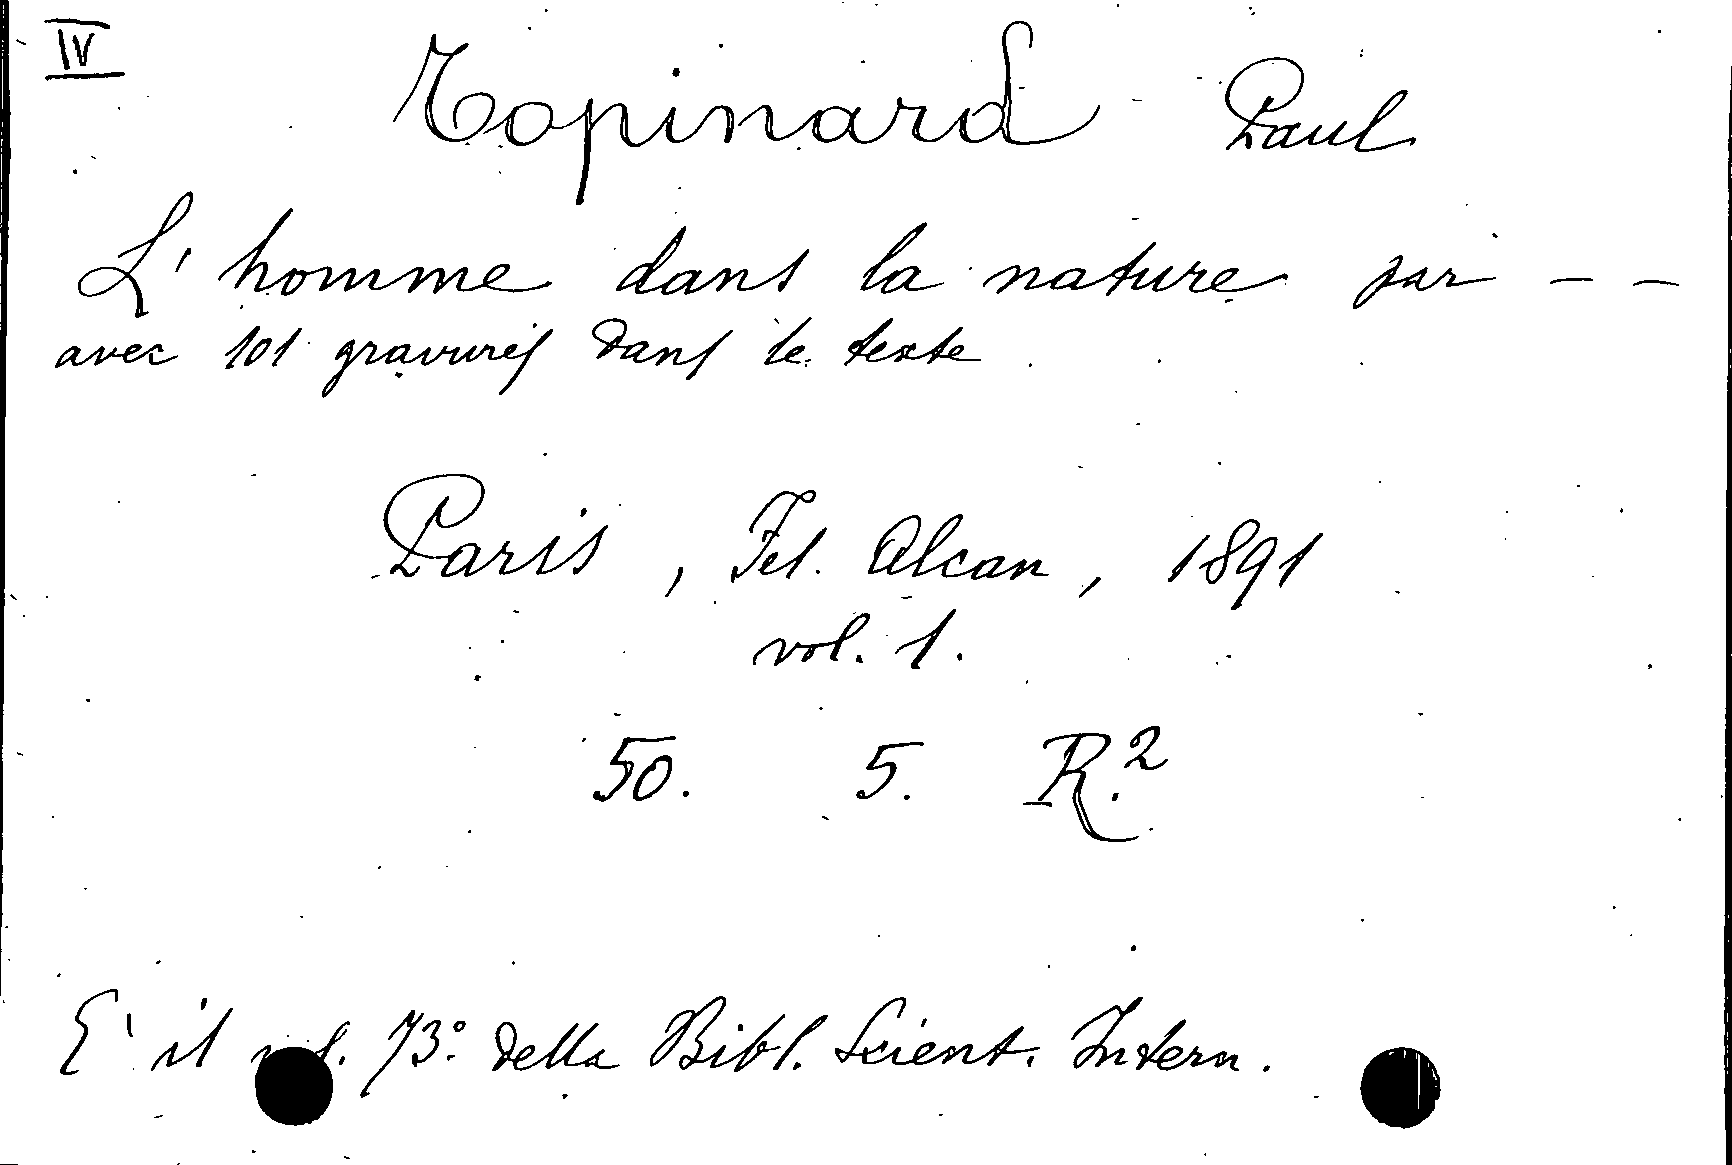 IV
Topinard Paul
L' homme dans la nature par - -
avec 101 gravures dans le texte
Paris, Fel. Alcan, 1891
vol. 1.
50. 5. R.2
E' il vol. 73.° della Bibl. Scient. Intern.